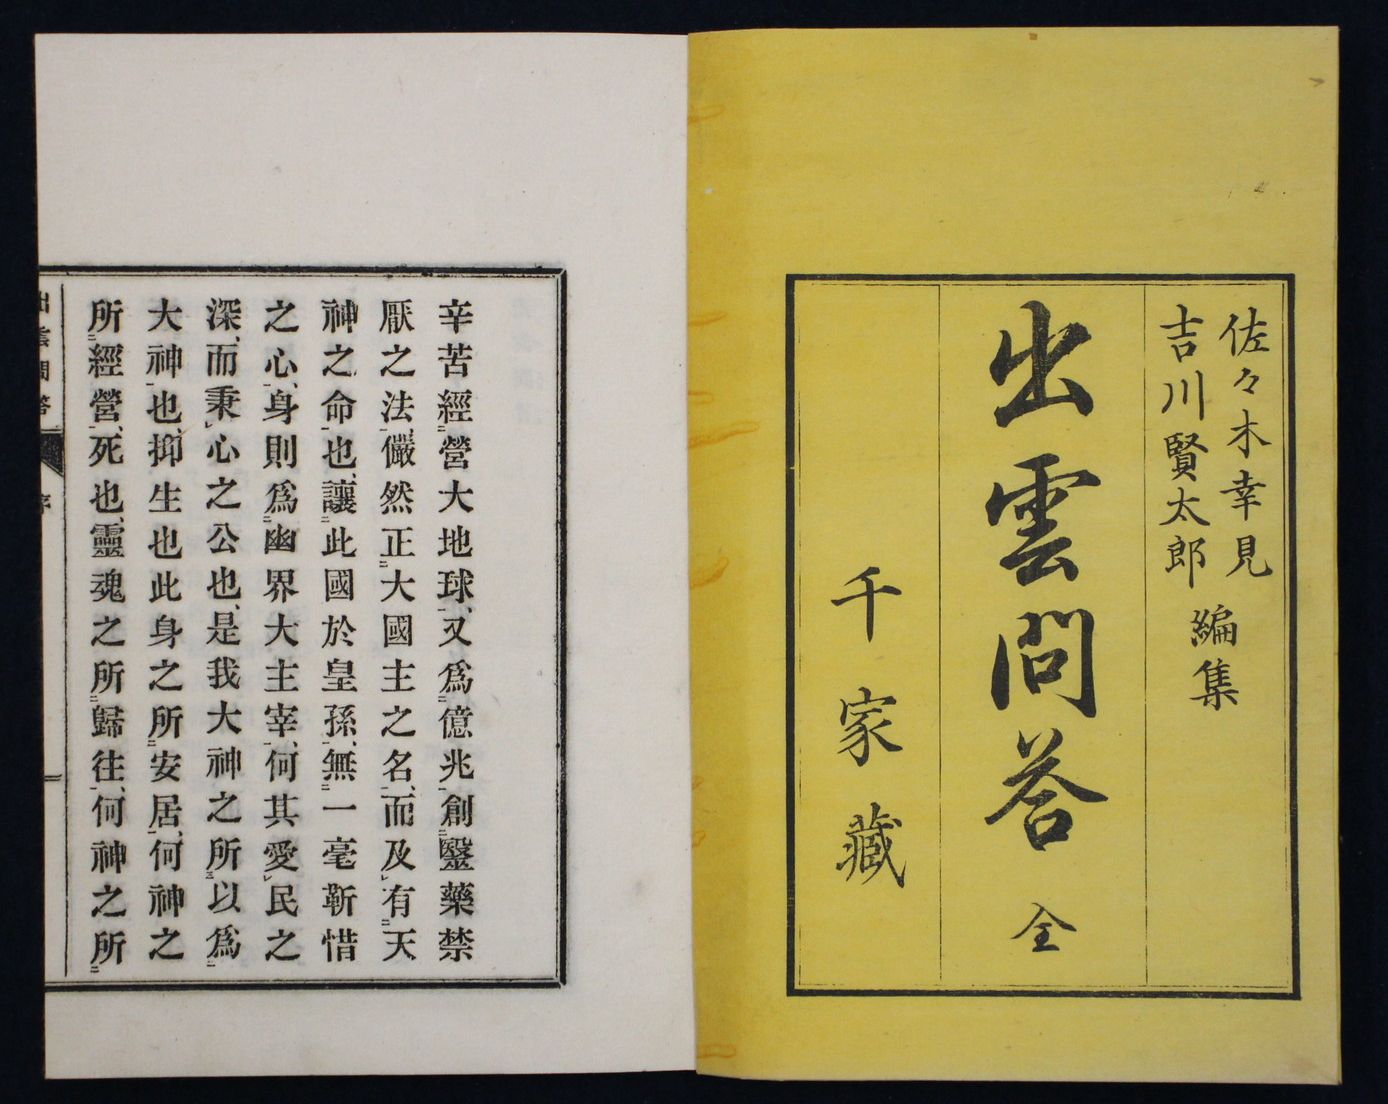 佐々木幸見
吉川賢太郎
編集
出雲問答 全
千家藏
辛苦經營大地球、又爲億兆創毉藥禁
厭之法、儼然正大國主之名、而及有天
神之命也、讓此國於皇孫、無一毫靳惜
之心、身則爲幽界大主宰、何其愛民之
深、而秉心之公也、是我大神之所以爲
大神也、抑生也此身之所安居、何神之
所經營、死也、靈魂之所歸往、何神之所
出雲問答
序